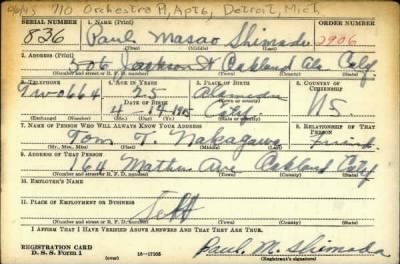 710 Orchestra Pl, Apt 6, Detroit, Mich
SERIAL NUMBER 1. NAME (Print) ORDER NUMBER
836 Paul Masao Shimada 2906
(First) (Middle) (Last)
2. ADDRESS (Print)
506 Jackson St Oakland Ala Calif
(Number and street or R. F. D. number) (Town) (County) (State)
3. TELEPHONE 4. AGE IN YEARS 5. PLACE OF BIRTH 6. COUNTRY OF CITIZENSHIP
Two 664 25 Alameda
DATE OF BIRTH
4-14-1915 Calif U.S.
(Exchange) (Number) (Mo.) (Day) (Yr.) (State or country)
7. NAME OF PERSON WHO WILL ALWAYS KNOW YOUR ADDRESS 8. RELATIONSHIP OF THAT PERSON
Tom T. Nakagawa Friend
(Mr., Mrs., Miss) (First) (Middle) (Last)
9. ADDRESS OF THAT PERSON
Ave Oakland Calif
(Number and street or R. F. D. number) (Town) (County) (State)
10. EMPLOYER'S NAME
11. PLACE OF EMPLOYMENT OR BUSINESS
Self
(Number and street or R. F. D. number) (Town) (County) (State)
I AFFIRM THAT I HAVE VERIFIED ABOVE ANSWERS AND THAT THEY ARE TRUE.
REGISTRATION CARD
D. S. S. Form 1 16-17105
Paul M. Shimada
(Registrant's signature)